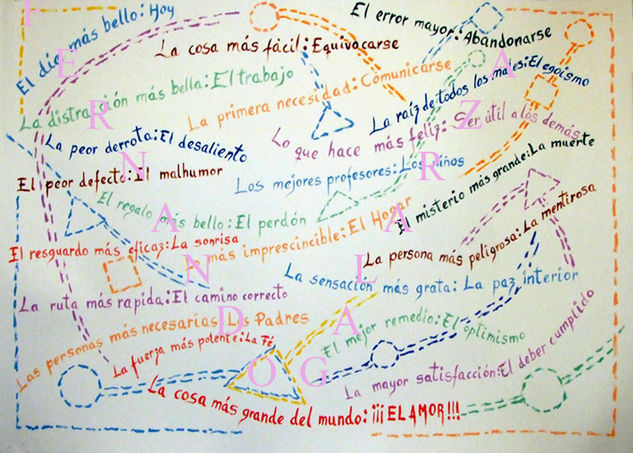 El día más bello: Hoy
El error mayor: Abandonarse
La cosa más fácil: Equivocarse
La distracción más bella: El trabajo
La primera necesidad: Comunicarse
La raíz de todos los males: El egoismo
La peor derrota: El desaliento
Lo que hace más feliz: Ser útil a los demás
El peor defecto: El malhumor
Los mejores profesores: Los niños
El misterio más grande: La muerte
El regalo más bello: El perdón
Lo más imprescincible: El Hogar
El resguardo más eficaz: La sonrisa
La persona más peligrosa: La mentirosa
La sensación más grata: La paz interior
La ruta más rapida: El camino correcto
Las personas más necesarias: Los Padres
El mejor remedio: El optimismo
La fuerza más potente: La Fé
La mayor satisfacción: El deber cumplido
La cosa más grande del mundo: ¡¡¡EL AMOR!!!
FERNANDO G
GALARZA